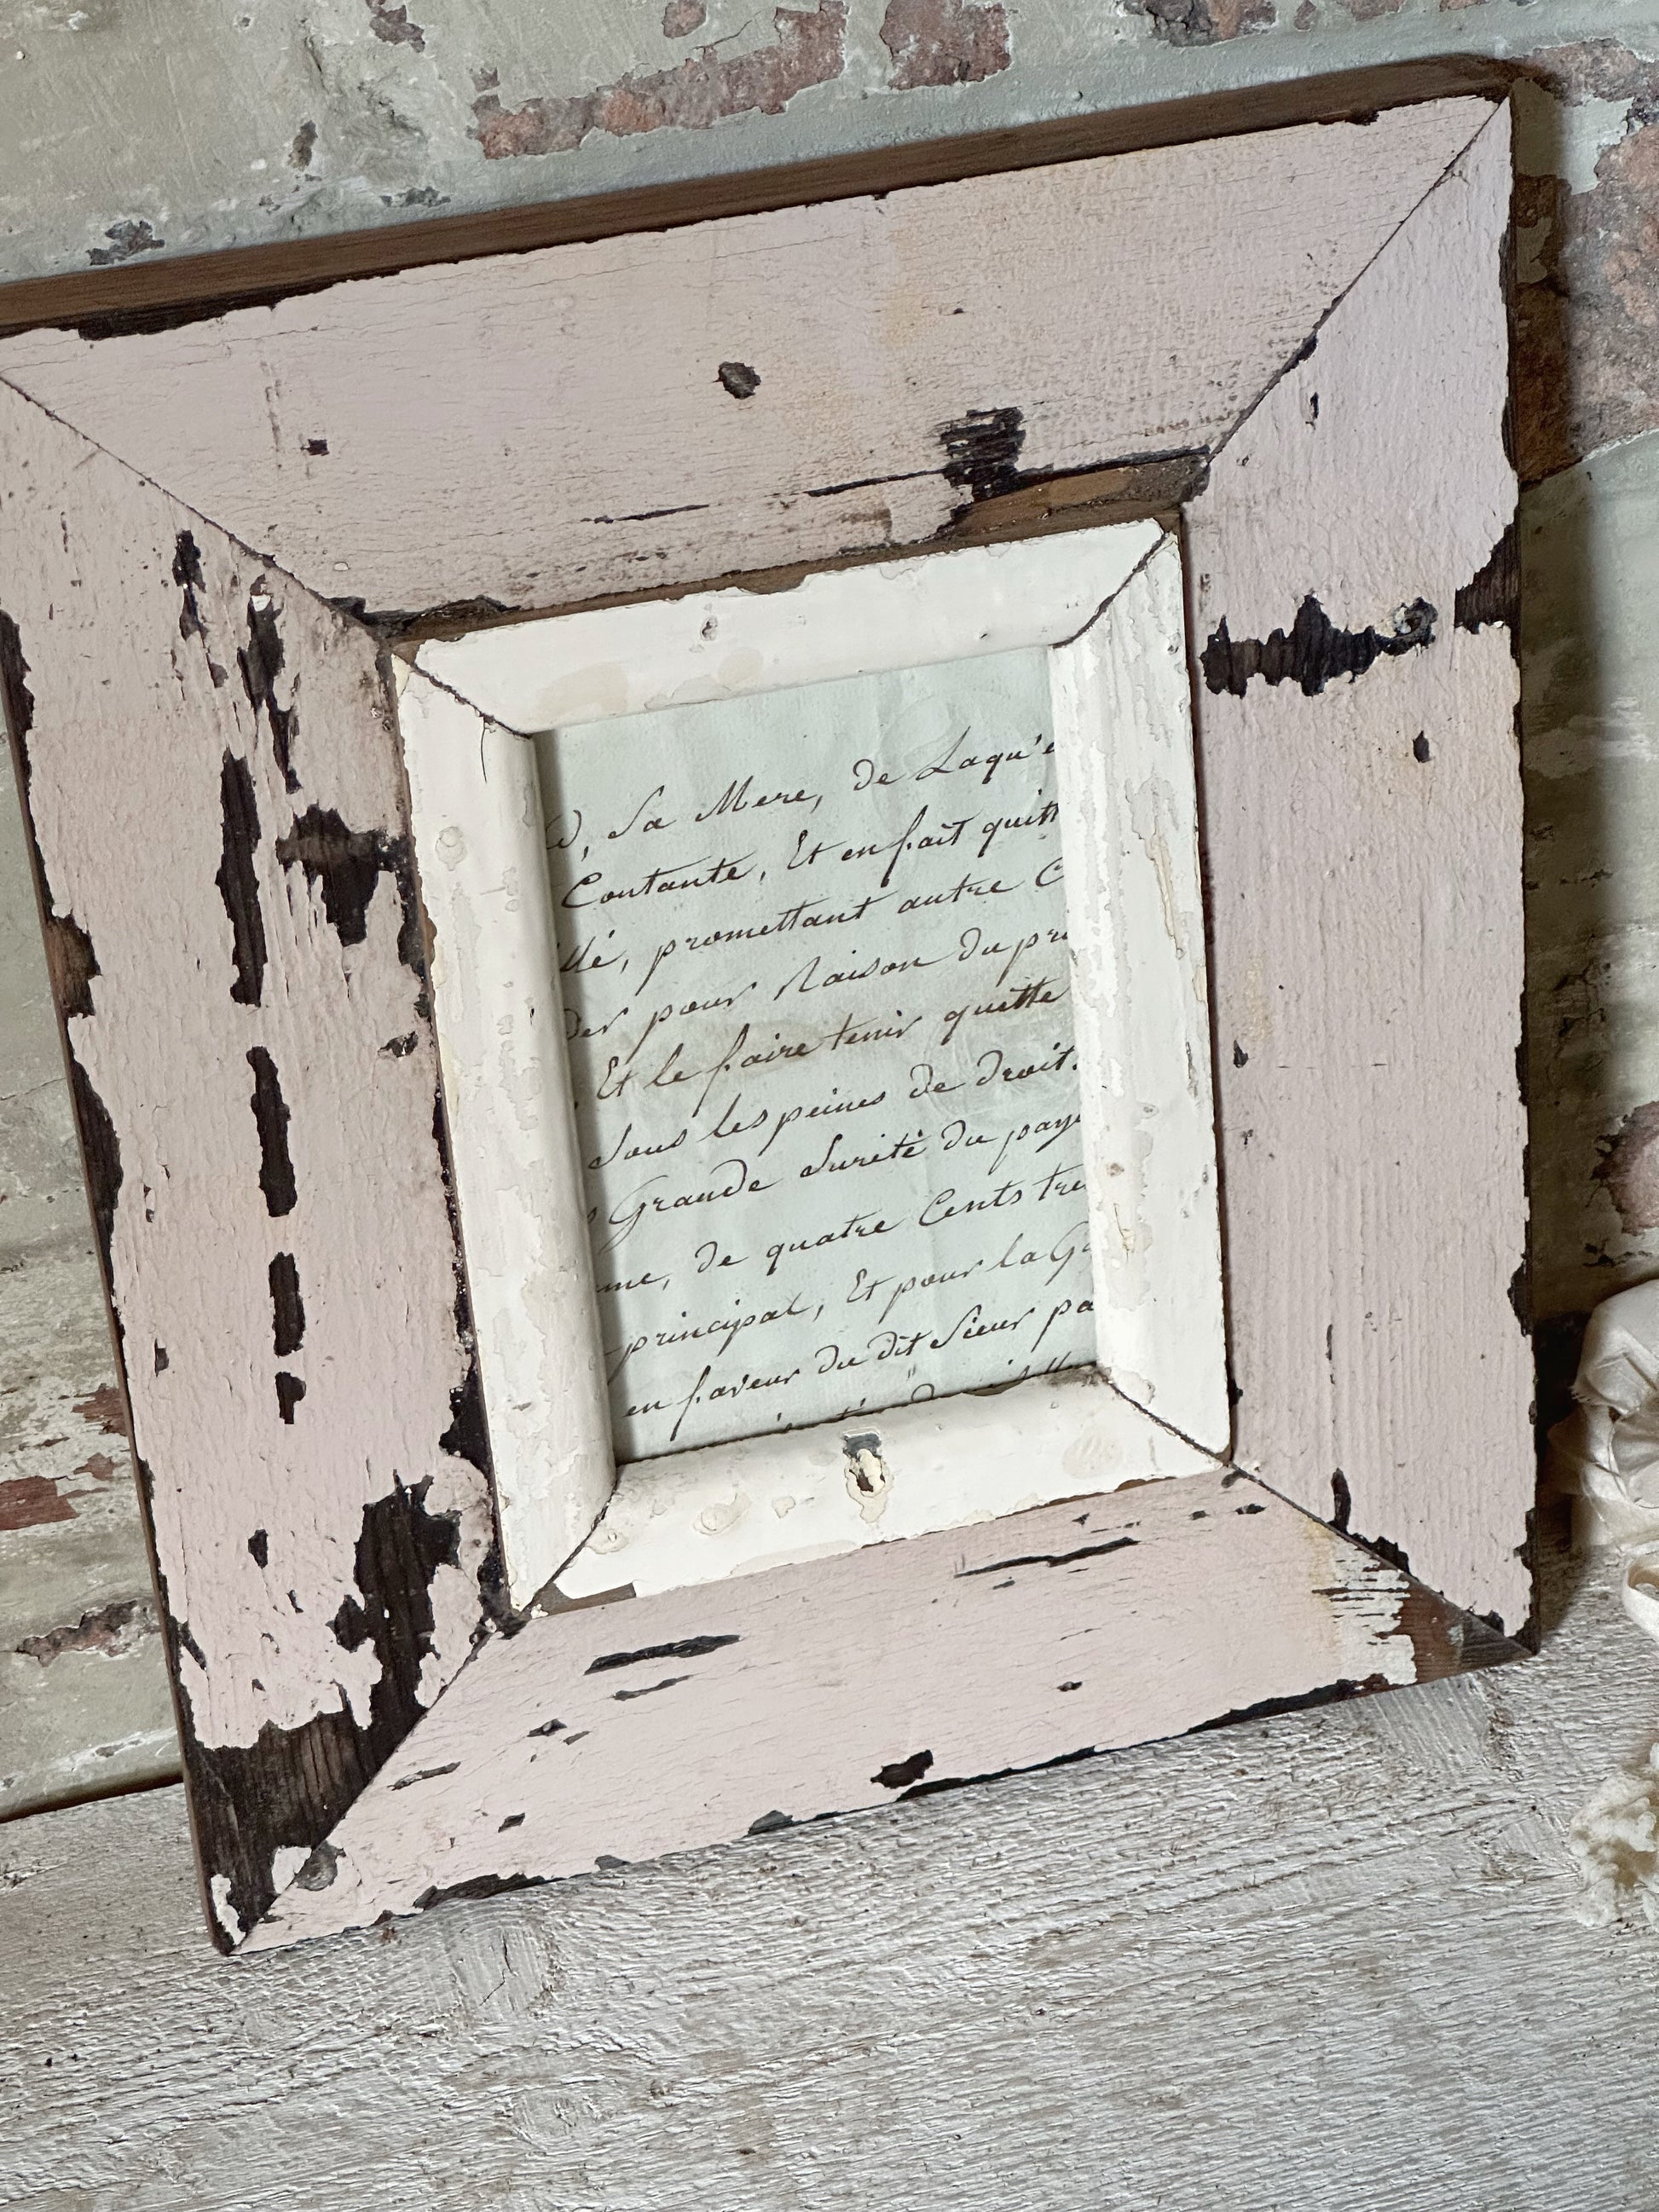 , Sa Mere, de Laqu'e
Contante, Et en fait quitt
llé, promettant autre C
der pour Raison du pre
Et le faire tenir quitte
Sous les peines de droit.
Grande Sureté du paye
me, de quatre Cents tre
principal, Et pour la Ga
en faveur du dit Sieur pa